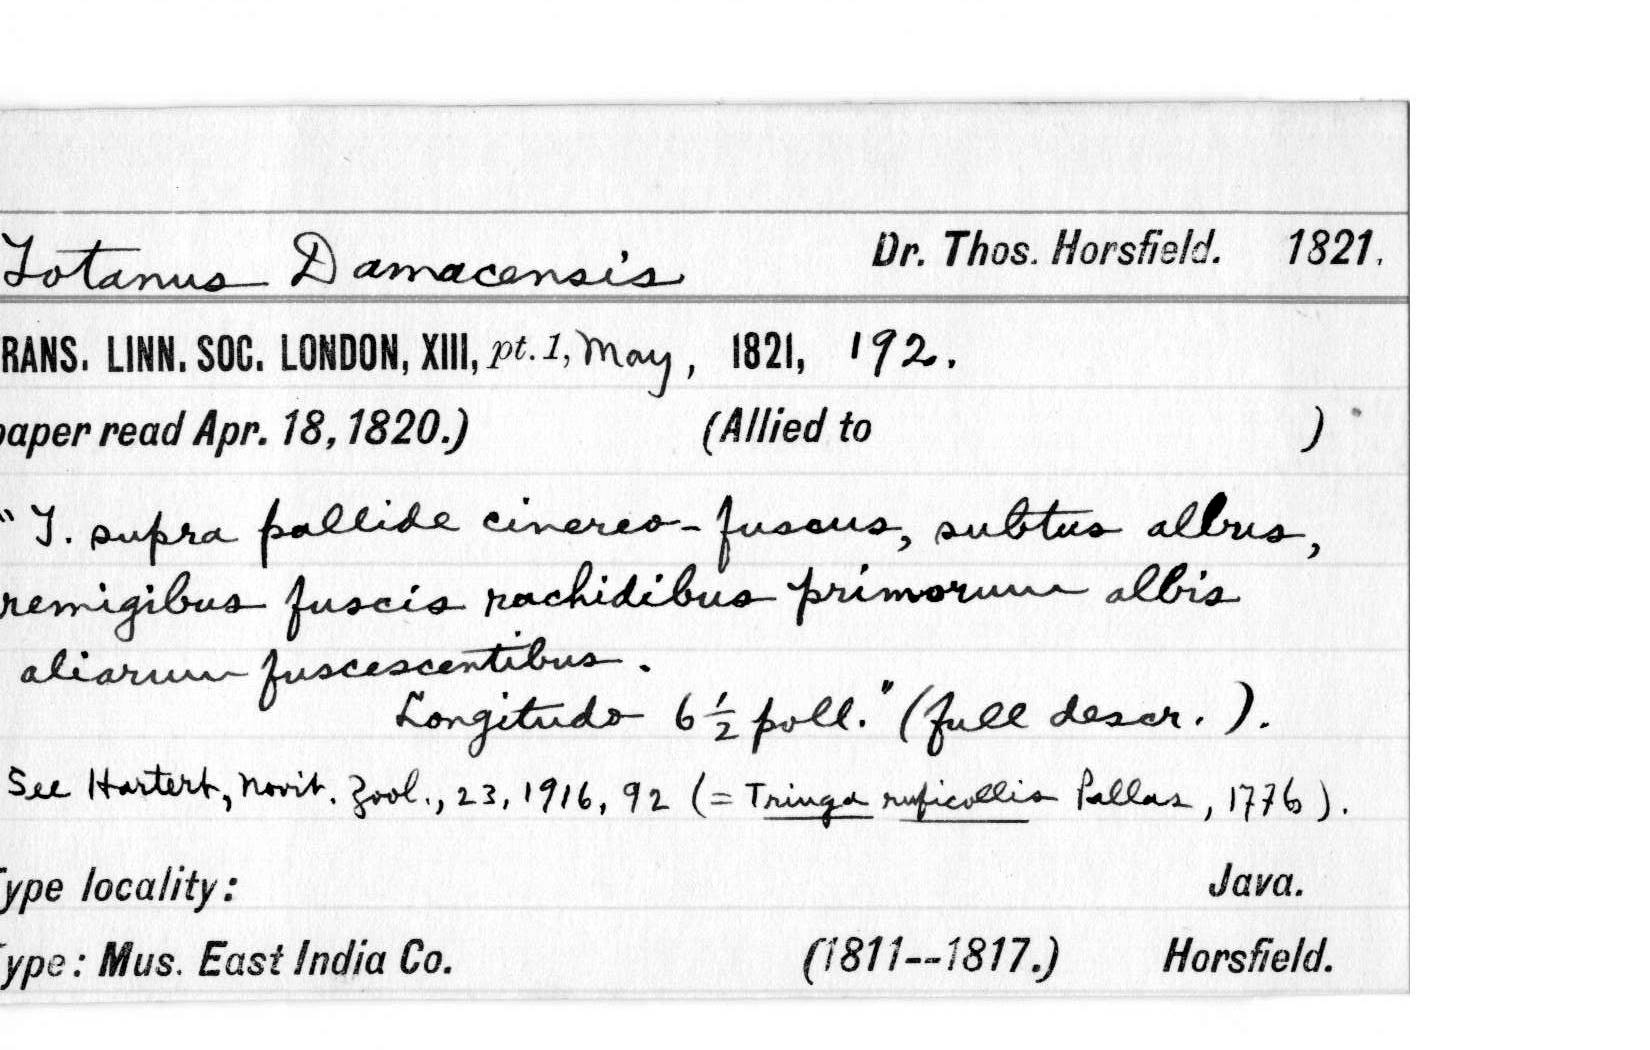 Totanus Damacensis Dr. Thos. Horsfield. 1821.
RANS. LINN. SOC. LONDON, XIII, pt. 1, May, 1821, 192.
paper read Apr. 18, 1820.) (Allied to )
"T. supra pallide cinereo-fuscus, subtus albus,
remigibus fuscis rachidibus primorum albis
aliarum fuscescentibus.
Longitudo 6½ poll." (full descr.).
See Hartert, Novit. Zool., 23, 1916, 92 (= Tringa ruficollis Pallas, 1776).
Type locality: Java.
Type: Mus. East India Co. (1811--1817.) Horsfield.